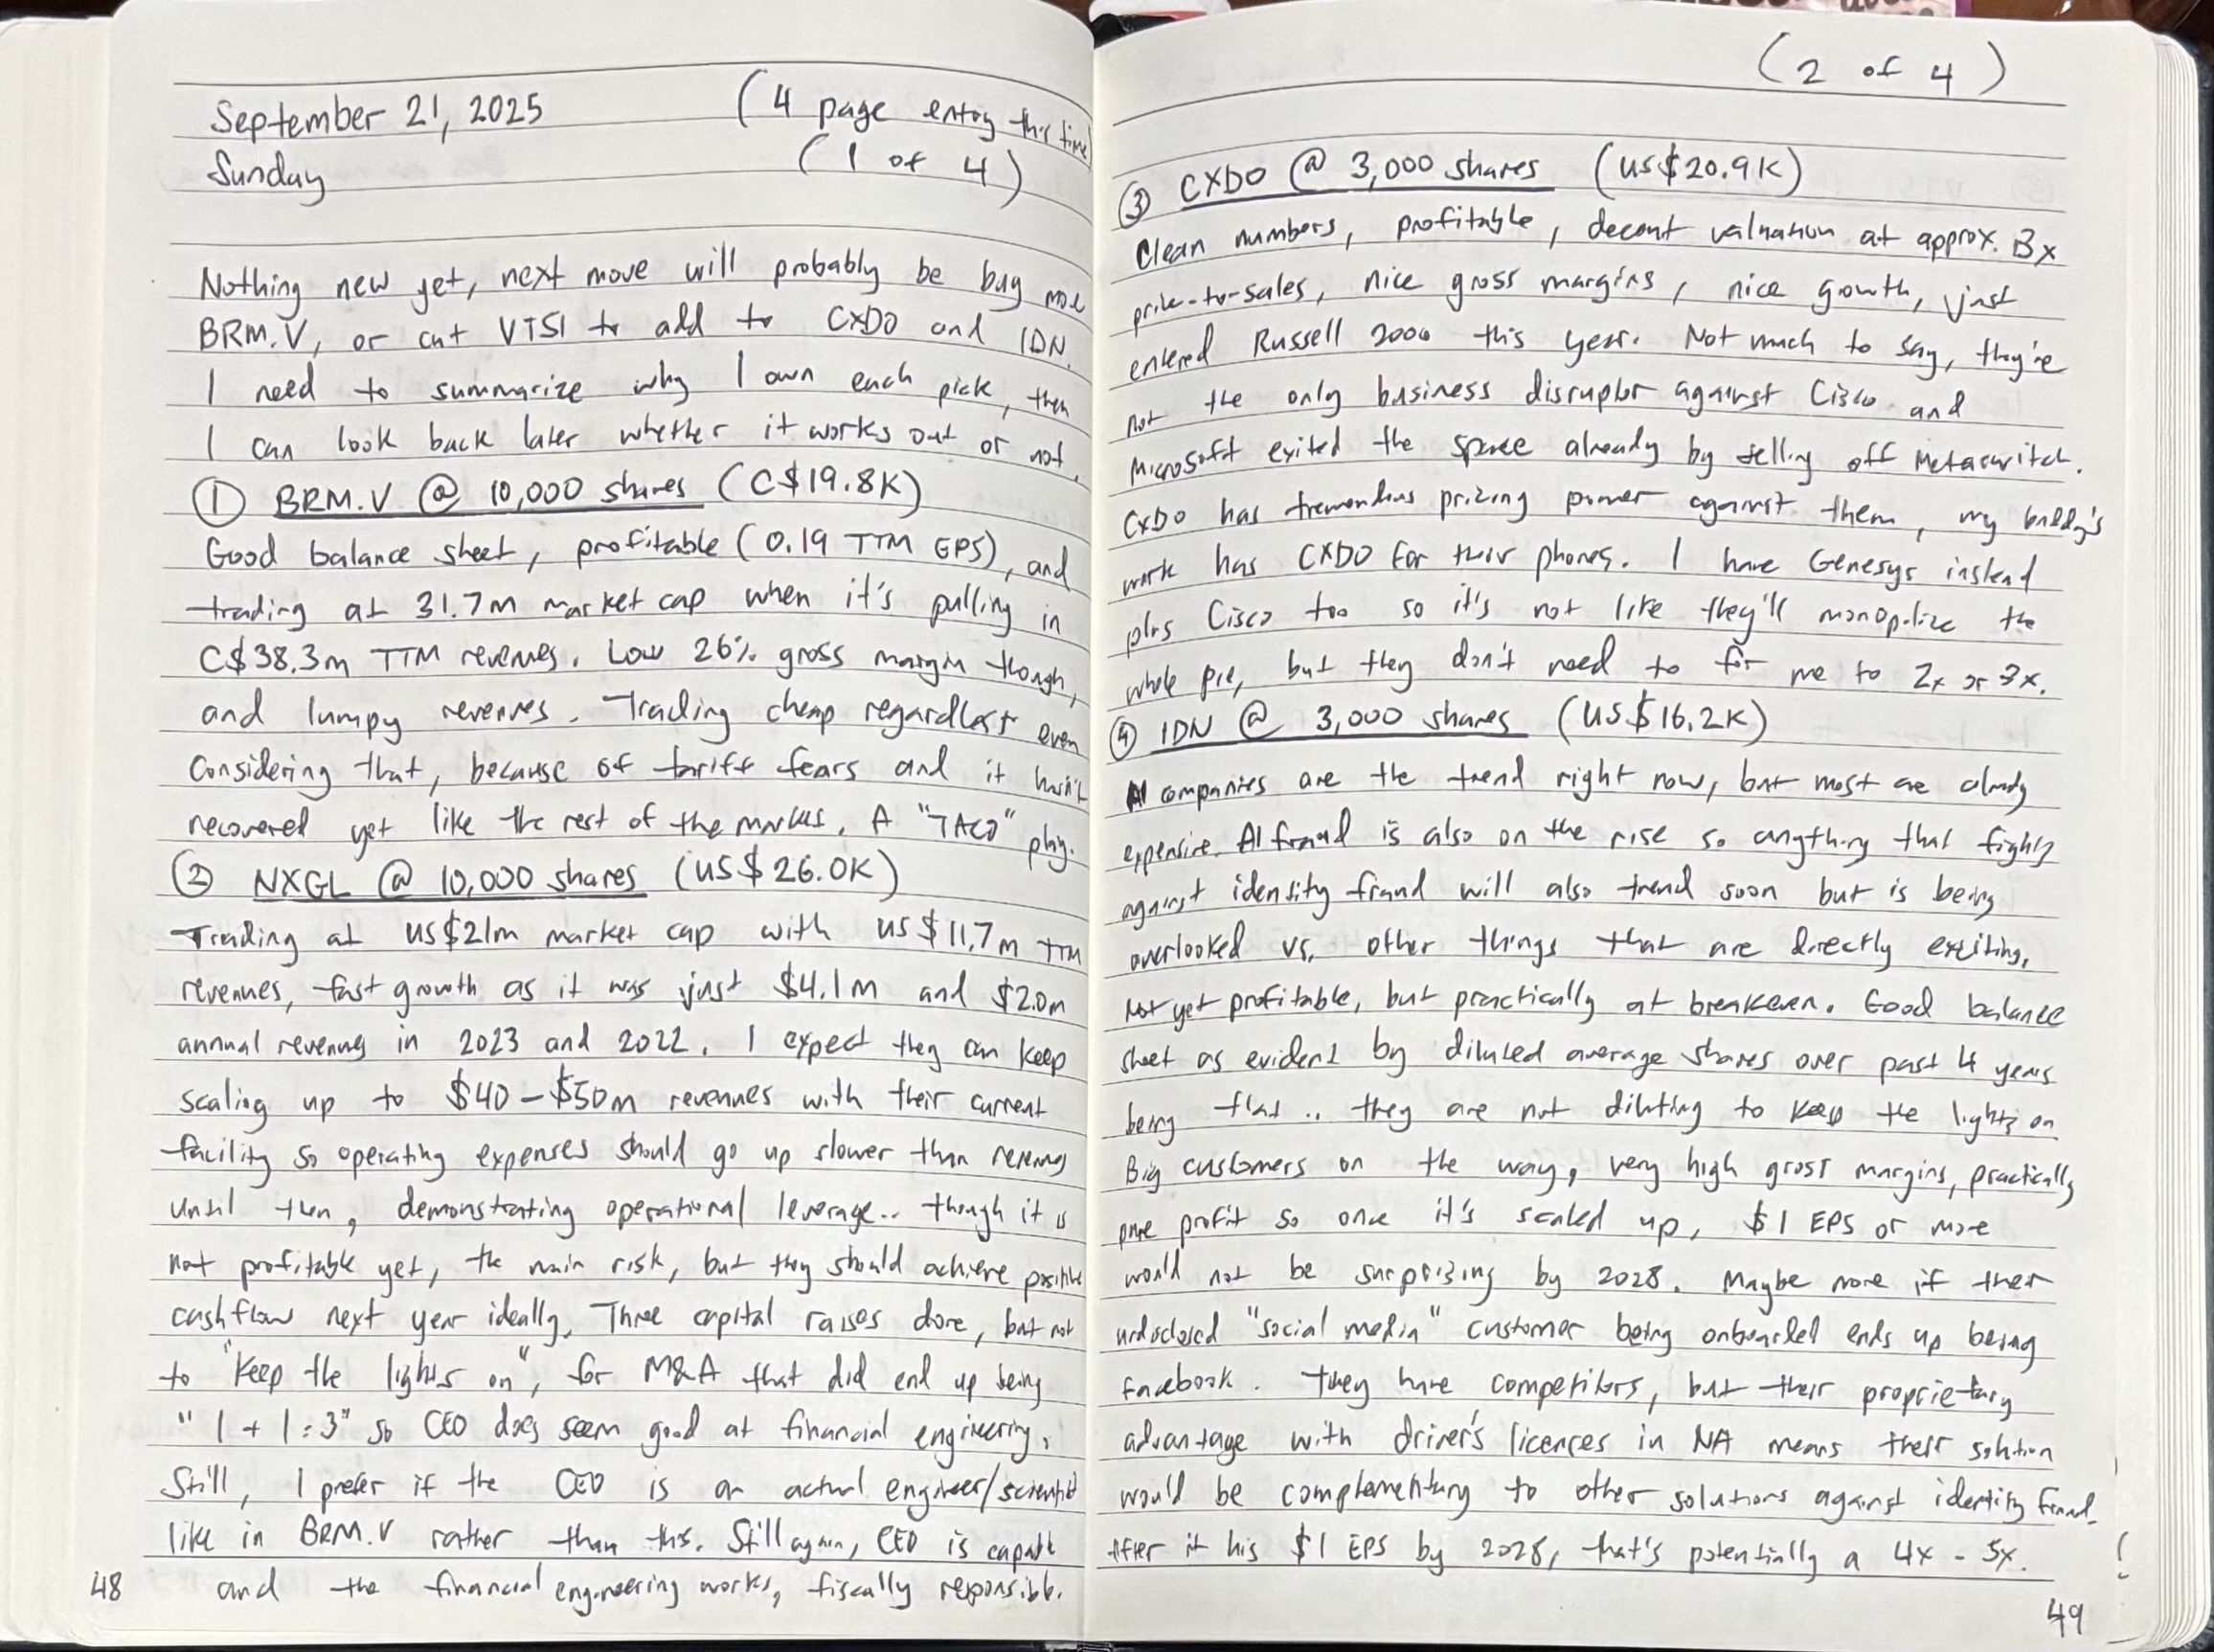 September 21, 2025 (4 page entry this time)
Sunday (1 of 4)
Nothing new yet, next move will probably be buy more
BRM.V, or cut VTSI to add to CXDO and IDN.
I need to summarize why I own each pick, then
I can look back later whether it works out or not.
① BRM.V @ 10,000 shares (C$19.8K)
Good balance sheet, profitable (0.19 TTM EPS), and
trading at 31.7m market cap when it's pulling in
C$38.3m TTM revenues. Low 26% gross margin though,
and lumpy revenues. Trading cheap regardless even
considering that, because of tariff fears and it hasn't
recovered yet like the rest of the markets. A "TACO" play.
② NXGL @ 10,000 shares (US$26.0K)
Trading at US$21m market cap with US$11.7m TTM
revenues, fast growth as it was just $4.1m and $2.0m
annual revenues in 2023 and 2022. I expect they can keep
scaling up to $40-$50m revenues with their current
facility so operating expenses should go up slower than revenues
until then, demonstrating operational leverage.. though it is
not profitable yet, the main risk, but they should achieve positive
cashflow next year ideally. Three capital raises done, but not
to "keep the lights on", for M&A that did end up being
"1+1=3" so CEO does seem good at financial engineering.
Still, I prefer if the CEO is an actual engineer/scientist
like in BRM.V rather than this. Still again, CEO is capable
and the financial engineering works, fiscally responsible.
48
(2 of 4)
③ CXDO @ 3,000 shares (US$20.9K)
Clean numbers, profitable, decent valuation at approx. 3x
price-to-sales, nice gross margins, nice growth, just
entered Russell 2000 this year. Not much to say, they're
not the only business disruptor against Cisco and
Microsoft exited the space already by selling off Metaswitch.
CXDO has tremendous pricing power against them, my buddy's
work has CXDO for their phones. I have Genesys instead
plus Cisco too so it's not like they'll monopolize the
whole pie, but they don't need to for me to 2x or 3x.
④ IDN @ 3,000 shares (US$16.2K)
AI companies are the trend right now, but most are already
expensive. AI fraud is also on the rise so anything that fights
against identity fraud will also trend soon but is being
overlooked vs. other things that are directly exciting.
Not yet profitable, but practically at breakeven. Good balance
sheet as evident by diluted average shares over past 4 years
being flat.. they are not diluting to keep the lights on
Big customers on the way, very high gross margins, practically
pure profit so once it's scaled up, $1 EPS or more
would not be surprising by 2028. Maybe more if their
undisclosed "social media" customer being onboarded ends up being
facebook. They have competitors, but their proprietary
advantage with driver's licences in NA means their solution
would be complementary to other solutions against identity fraud.
After it hits $1 EPS by 2028, that's potentially a 4x - 5x. !
49